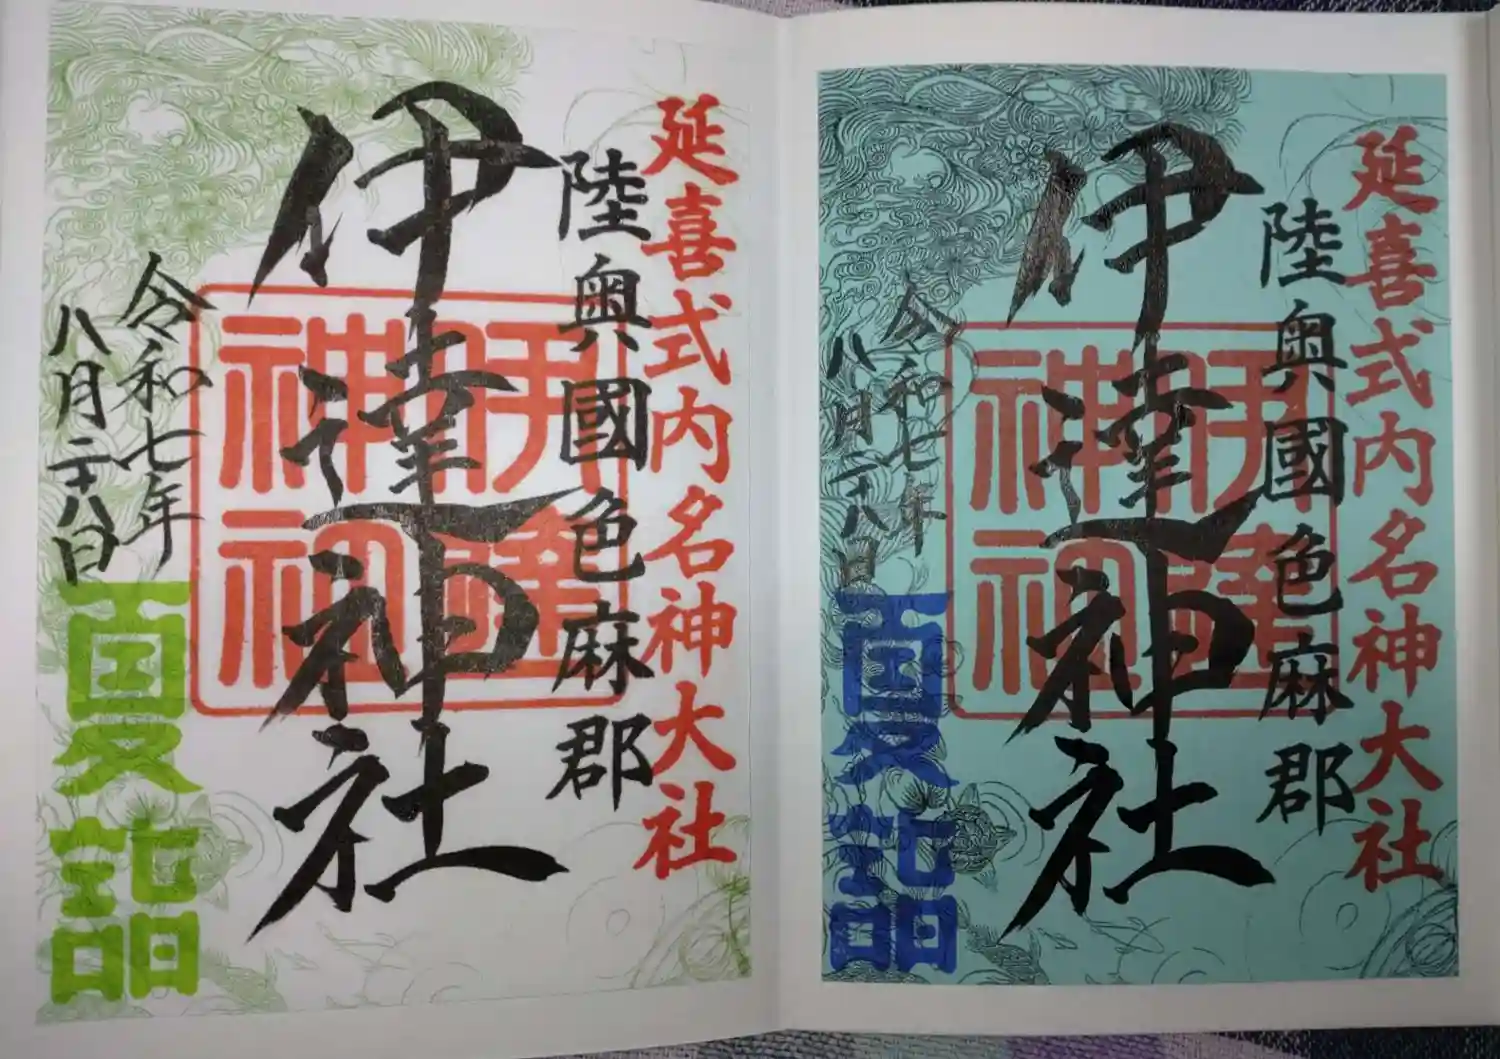 延喜式内名神大社
陸奥國色麻郡
伊達神社
伊達
神社
令和七年
八月二十八日
夏詣
延喜式内名神大社
陸奥國色麻郡
伊達神社
伊達
神社
令和七年
八月二十八日
夏詣